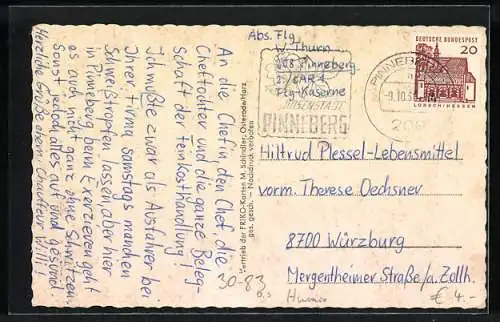 Abs. Flg
W. Thurn
208 Pinneberg
Flg-Kaserne
DEUTSCHE BUNDESPOST
20
LORSCH/HESSEN
PINNEBERG
ROSENSTADT
PINNEBERG
An die Chefin, den Chef, die
Cheftochter und die ganze Beleg-
schaft der Feinkosthandlung!
Ich mußte zwar als Ausfahrer bei
Ihrer Firma samstags manchen
Schweißtropfen lassen, aber hier
in Pinneberg beim Exerzieren geht
es auch nicht ganz ohne Schwitzen.
Sonst jedoch alles auf und gesund!
Herzliche Grüße Ihrem Chauffeur Willi!
Vertrieb der FRIKO-Karten M. Schindler, Osterode/Harz
ges. gesch. - Nachdruck verboten
Hiltrud Plessel-Lebensmittel
vorm. Therese Oechsner
8700 Würzburg
Mergentheimer Straße/a. Zollh.
30-83
Humor
€ 4.-